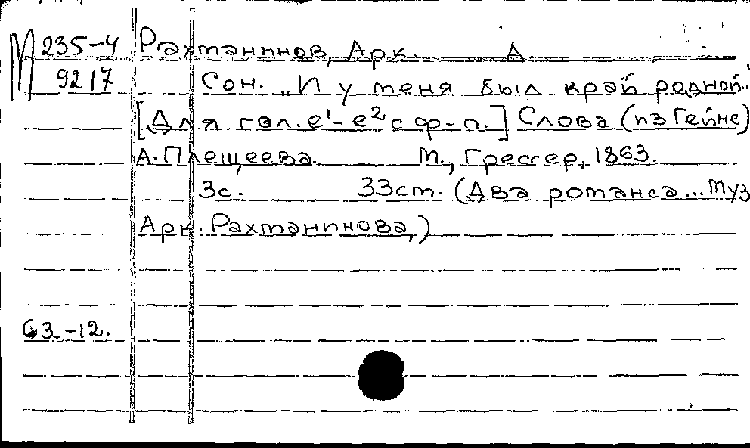 М 235-4 Рахманинов, Арк. А
9217 Сон. „И у меня был край родной."
[Для гол. e¹-e² с ф-п.] Слова (из Гейне)
А. Плещеева. М., Грессер, 1863.
3с. 33см. (Два романса... Муз.
Арк. Рахманинова.)
63-12.